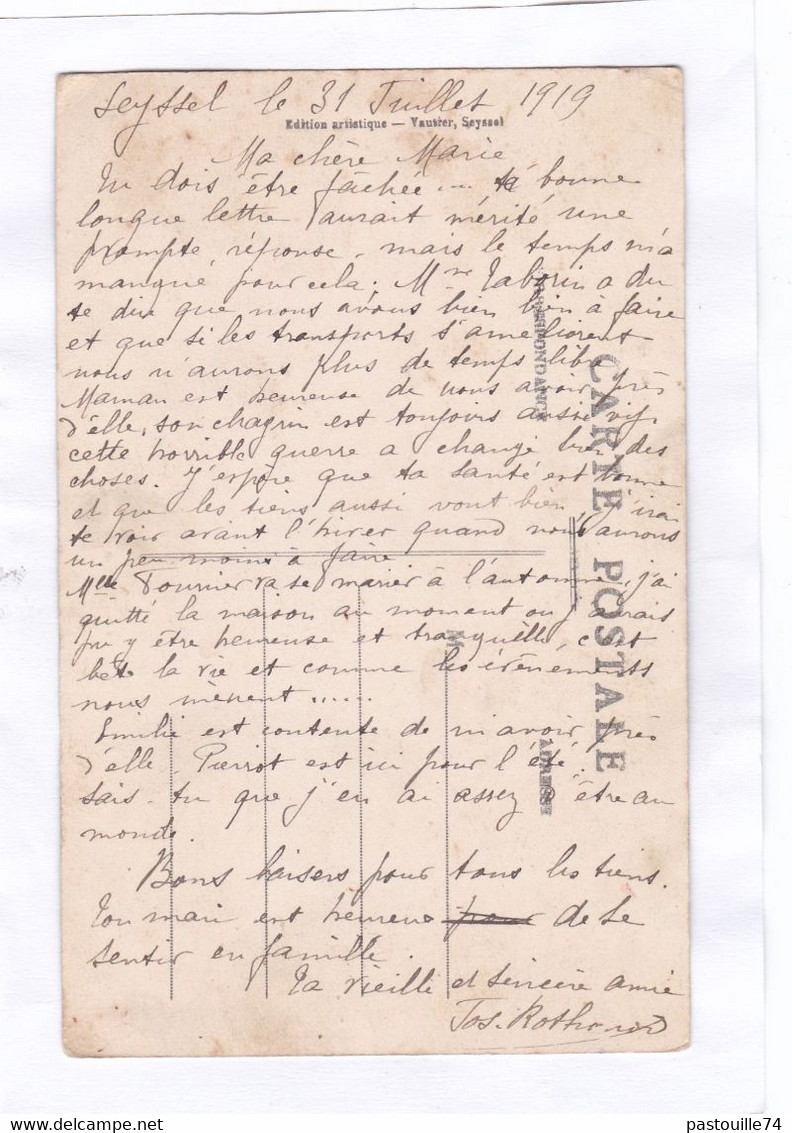 Seyssel le 31 Juillet 1919
Edition artistique — Vautier, Seyssel
Ma chère Marie
Tu dois être fâchée ... ta bonne
longue lettre aurait mérité une
prompte réponse, mais le temps m'a
manqué pour cela; Mme Taborin a du
te dire que nous avons bien bien à faire
et que si les transports s'améliorent
nous n'aurons plus de temps libre
Maman est heureuse de nous avoir près
d'elle, son chagrin est toujours aussi vif,
cette horrible guerre a changé bien des
choses. J'espère que ta santé est bonne
et que les tiens aussi vont bien, j'irai
te voir avant l'hiver quand nous aurons
un peu moins à faire
Mlle Fournier va se marier à l'automne, j'ai
quitté la maison au moment ou j'aurais
pu y être heureuse et tranquille, c'est
bête la vie et comme les évènements
nous mènent ......
Emilie est contente de m'avoir près
d'elle, Pierrot est ici pour l'été.
Sais-tu que j'en ai assez d'être au
monde.
Bons baisers pour tous les tiens.
Ton mari est heureux pour de se
sentir en famille.
Ta vieille et sincère amie
Jos.
CARTE POSTALE
CORRESPONDANCE
ADRESSE
M
delcampe.net
pastouille74